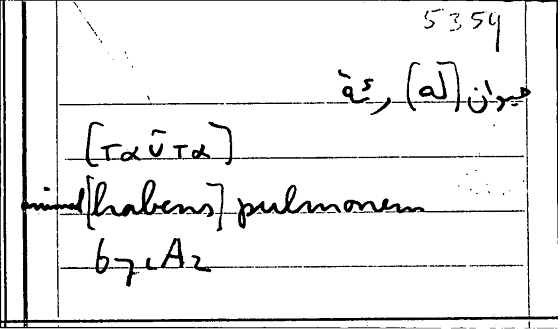 5354
حيوان (له) رئة
[ταῦτα]
animal [habens] pulmonem